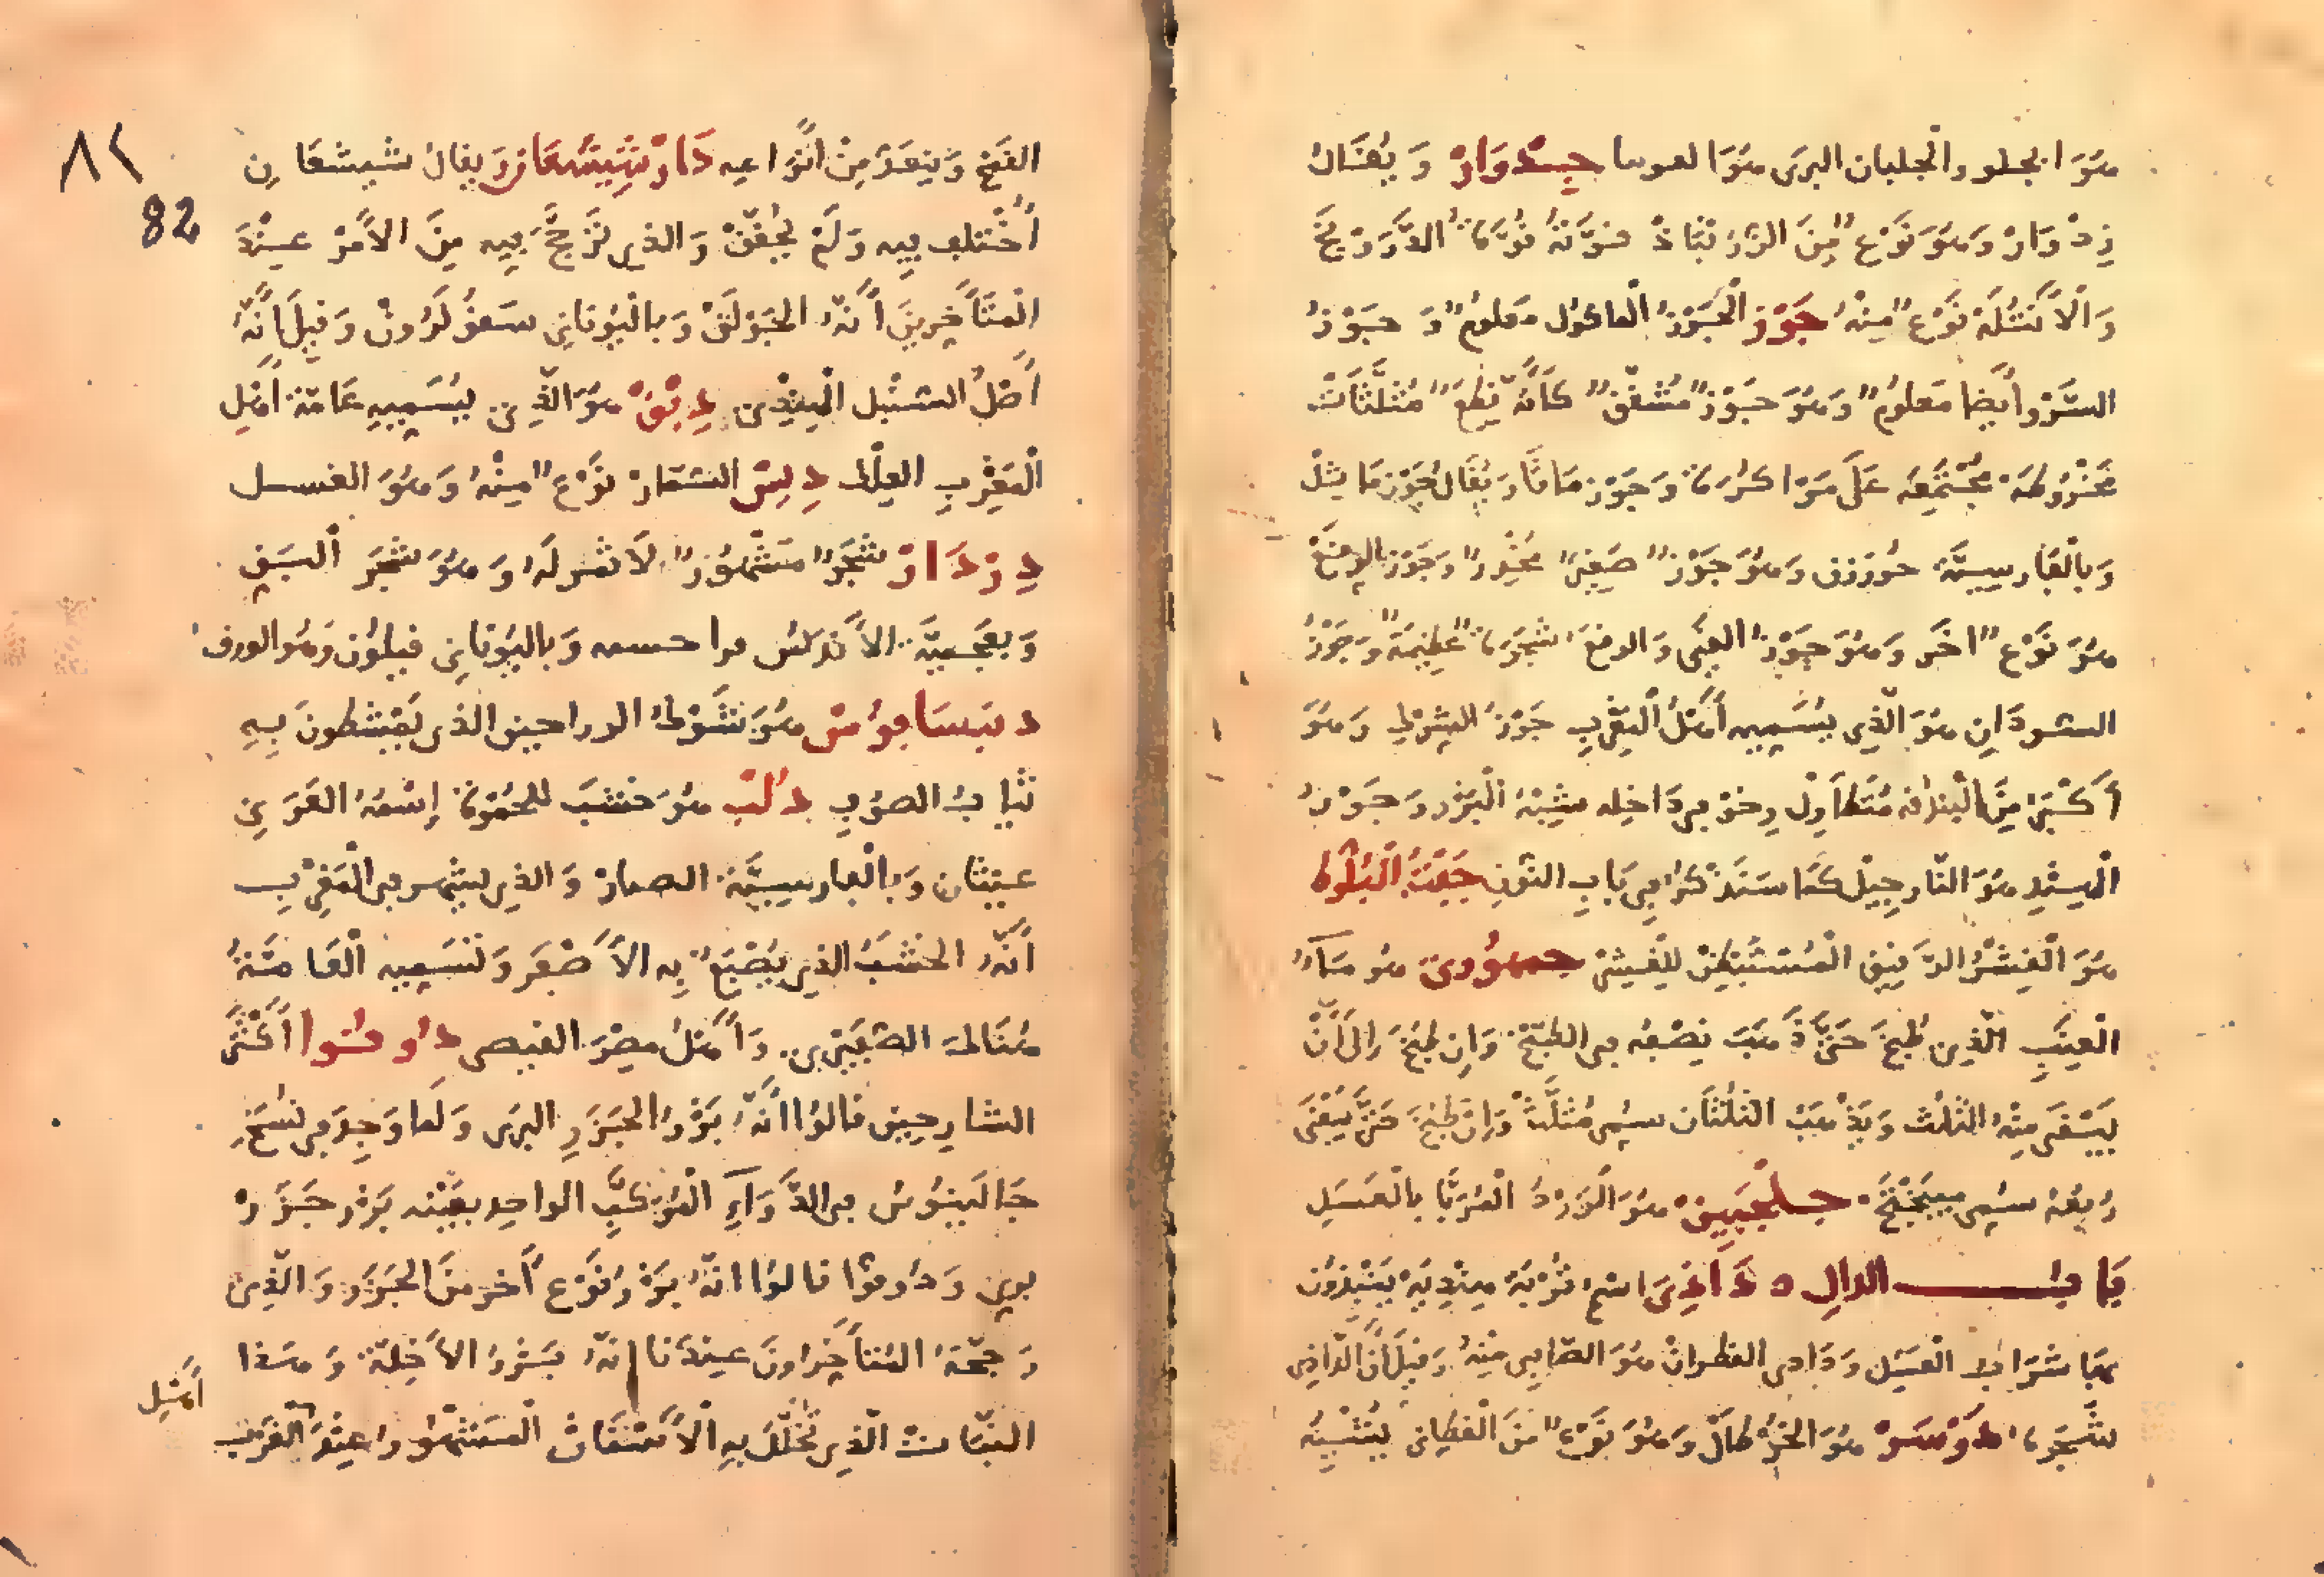 هُوَ الجلو والجلبان البرى هُوَ العوسا جِدْوَارْ وَيُقَالُ
زِدْوَارْ وَهُوَ نَوْعٌ مِنَ الزرنبَاذ قوَّتهُ قُوَّة الدَّرَوْنَجْ
وَالأَنتُلَة نَوْعٌ مِنْهُ جَوْز الْجَوْزُ الماكول مَعلومٌ وَجَوْزُ
السَّرْو أَيضا مَعلومٌ وَهُوَ جَوْزٌ مُشقّقٌ كَأَنَّه قِطَعٌ مُثلَّثَاتْ
مَخْرُوطَة مُجْتَمِعَه عَلَى هَوَا كُرَة وَجَوْز مَاثَا وَيُقَالُ جَوْز مَاثِلْ
وَبِالْفَارسِيَّة حوزرق وَهُوَ جَوْزٌ صَغِيرٌ مُخَدِّر وَجَوْزالرقعْ
هُوَ نَوْعٌ اخَر وَهُوَ جَوْزُ القَىِ وَالرقعَ شَجَرَة عَظِيمَةٌ وَجَوْزُ
السودَانِ هُوَ الَّذِي يُسَمِّيهِ أَهْلُ الْمَغْرِبِ جَوْزُ الشرْكِ وَهُوَ
أَكْبَرُ مِنَ الْبندقه مُتَطَاوِلْ رِخْوْ في دَاخِلِه شِبْهُ الْبَزْر وَجَوْزُ
الْهِنْدِ هُوَ النَّارجِيلْ كَمَا سَنَذكرُ فِي بَابِ النُّونِ جَفْتُ الْبَلُّوط
هُوَ الْقِشْرُ الرَّقِيق الْمُسْتَبْطِنْ لِلْقِشْرْ جمهُورِى هُو مَآءُ
الْعِنَبِ الَّذِى طُبِخَ حَتَّى ذَهَبَ نِصْفُه في الطَّبْخْ وَإِن طُبِخَ إِلَى أَنْ
يَبْقَى مِنْهُ الثُّلُث وَيَذْهَبُ الثلثَان سُمِى مُثَلَّثْ وَإِنْ طُبِخَ حَتَّى يَبْقَى
رُبعُهُ سُمِى ميبَخْتَجْ جلنجَبِينْ هُوَ الْوَرْدُ الْمُرَبَّا بِالْعَسَلِ
بَابُ الدالِ دَاذِى اسْمُ شَرْبَة هِنْدِيَهْ يَنْبِذُون
بهَا شرَابَ الْعَسَلِ وَدَادى القطران هُوَ الصَّافِى مِنْهُ وَقِيلَ أَنَّ الدَّاذِى
شَجَرَة دَوْسَرْ هُوَ الخُرْطَالْ وَهُوَ نَوْعٌ مِنَ الْقَطَانِى يُشْبِهُ
القَمْح وَيُعَدّ مِنْ أَنْوَاعِه دَارْشِيشْعَانْ وَيقالُ شيشعَان
أُخْتلف فِيهِ وَلَمْ يُحَقّقْ وَالذِى تَرَجَّحَ فِيهِ مِنَ الأمْر عِنْدَ
الْمتَأَخِّرِينَ أَنَّهُ الْجَوْلَقْ وَبِالْيُونَانِى سَعْفُلَرُونْ وَقِيلَ أَنَّهُ
أَصْلُ السّنْبل الْهِنْدِى دِبْقْ هُوَ الَّذِى يُسَمِّيهِ عَامّة أَهْل
الْمَغْرِبِ العِلْك دِبْس النتمَار نَوْعٌ مِنْهُ وَهُوَ العسل
دِرْدَارْ شَجَرٌ مَشْهُورٌ لَا ثمر لَهُ وَهُوَ شجَر الْبَقِ
وَبعَجَمِيَّة الأَنْدَلُس فراحسه وَبِاليُونَانِى فيلون وَهُوَ الورق
دِبْسَاقوُس هُوَ شَوْك الدراجين الذي يَمْشِطونَ بِهِ
ثِيَابُ الصوفِ دُلْب هُوَ خشَب للحُمْرَة إِسْمُهُ العَرَبِى
عيثان وَبِالْفارسِيَّة الصِنَار وَالذِى يَشهر في الْمَغْرِب
أَنَّهُ الخَشَبُ الذِي يُصْبَغُ بِه الأَصْفَر وَتُسَمِّيه الْعَامَّةُ
هُنَالِكَ الصّفَيْرى وَأَهْلُ مِصْرَ القيصى دُوقُوا أَكْثَرُ
الشارحِين قالوُا أَنَّهُ بَزْرُ الجَزَرِ البَرى وَلَمَا وَجِدَ في نُسَخِ
جَالَيِنُوس في الدَّوَآءِ الْمُرَكَّبِ الواحِد بعَيْنه بَزْر جَزَرْ
برى وَدُوقُوا قالوُا انَّهُ بَزْرُ نَوْعٍ أَخر مِنَ الجَزَر وَالَّذِى
رَجّحَهُ المُتأَخِّرونَ عِنْدَنَا إِنَّهُ بَزْرُ الأَخِلَّة وَهَذا
النّبَاتْ الَّذِى تُخَلَّلُ بِهِ الأَسْنَانْ الْمَشْهُور عِنْدَ الْعَرَبِ
أَهْلِ
٨٢
82